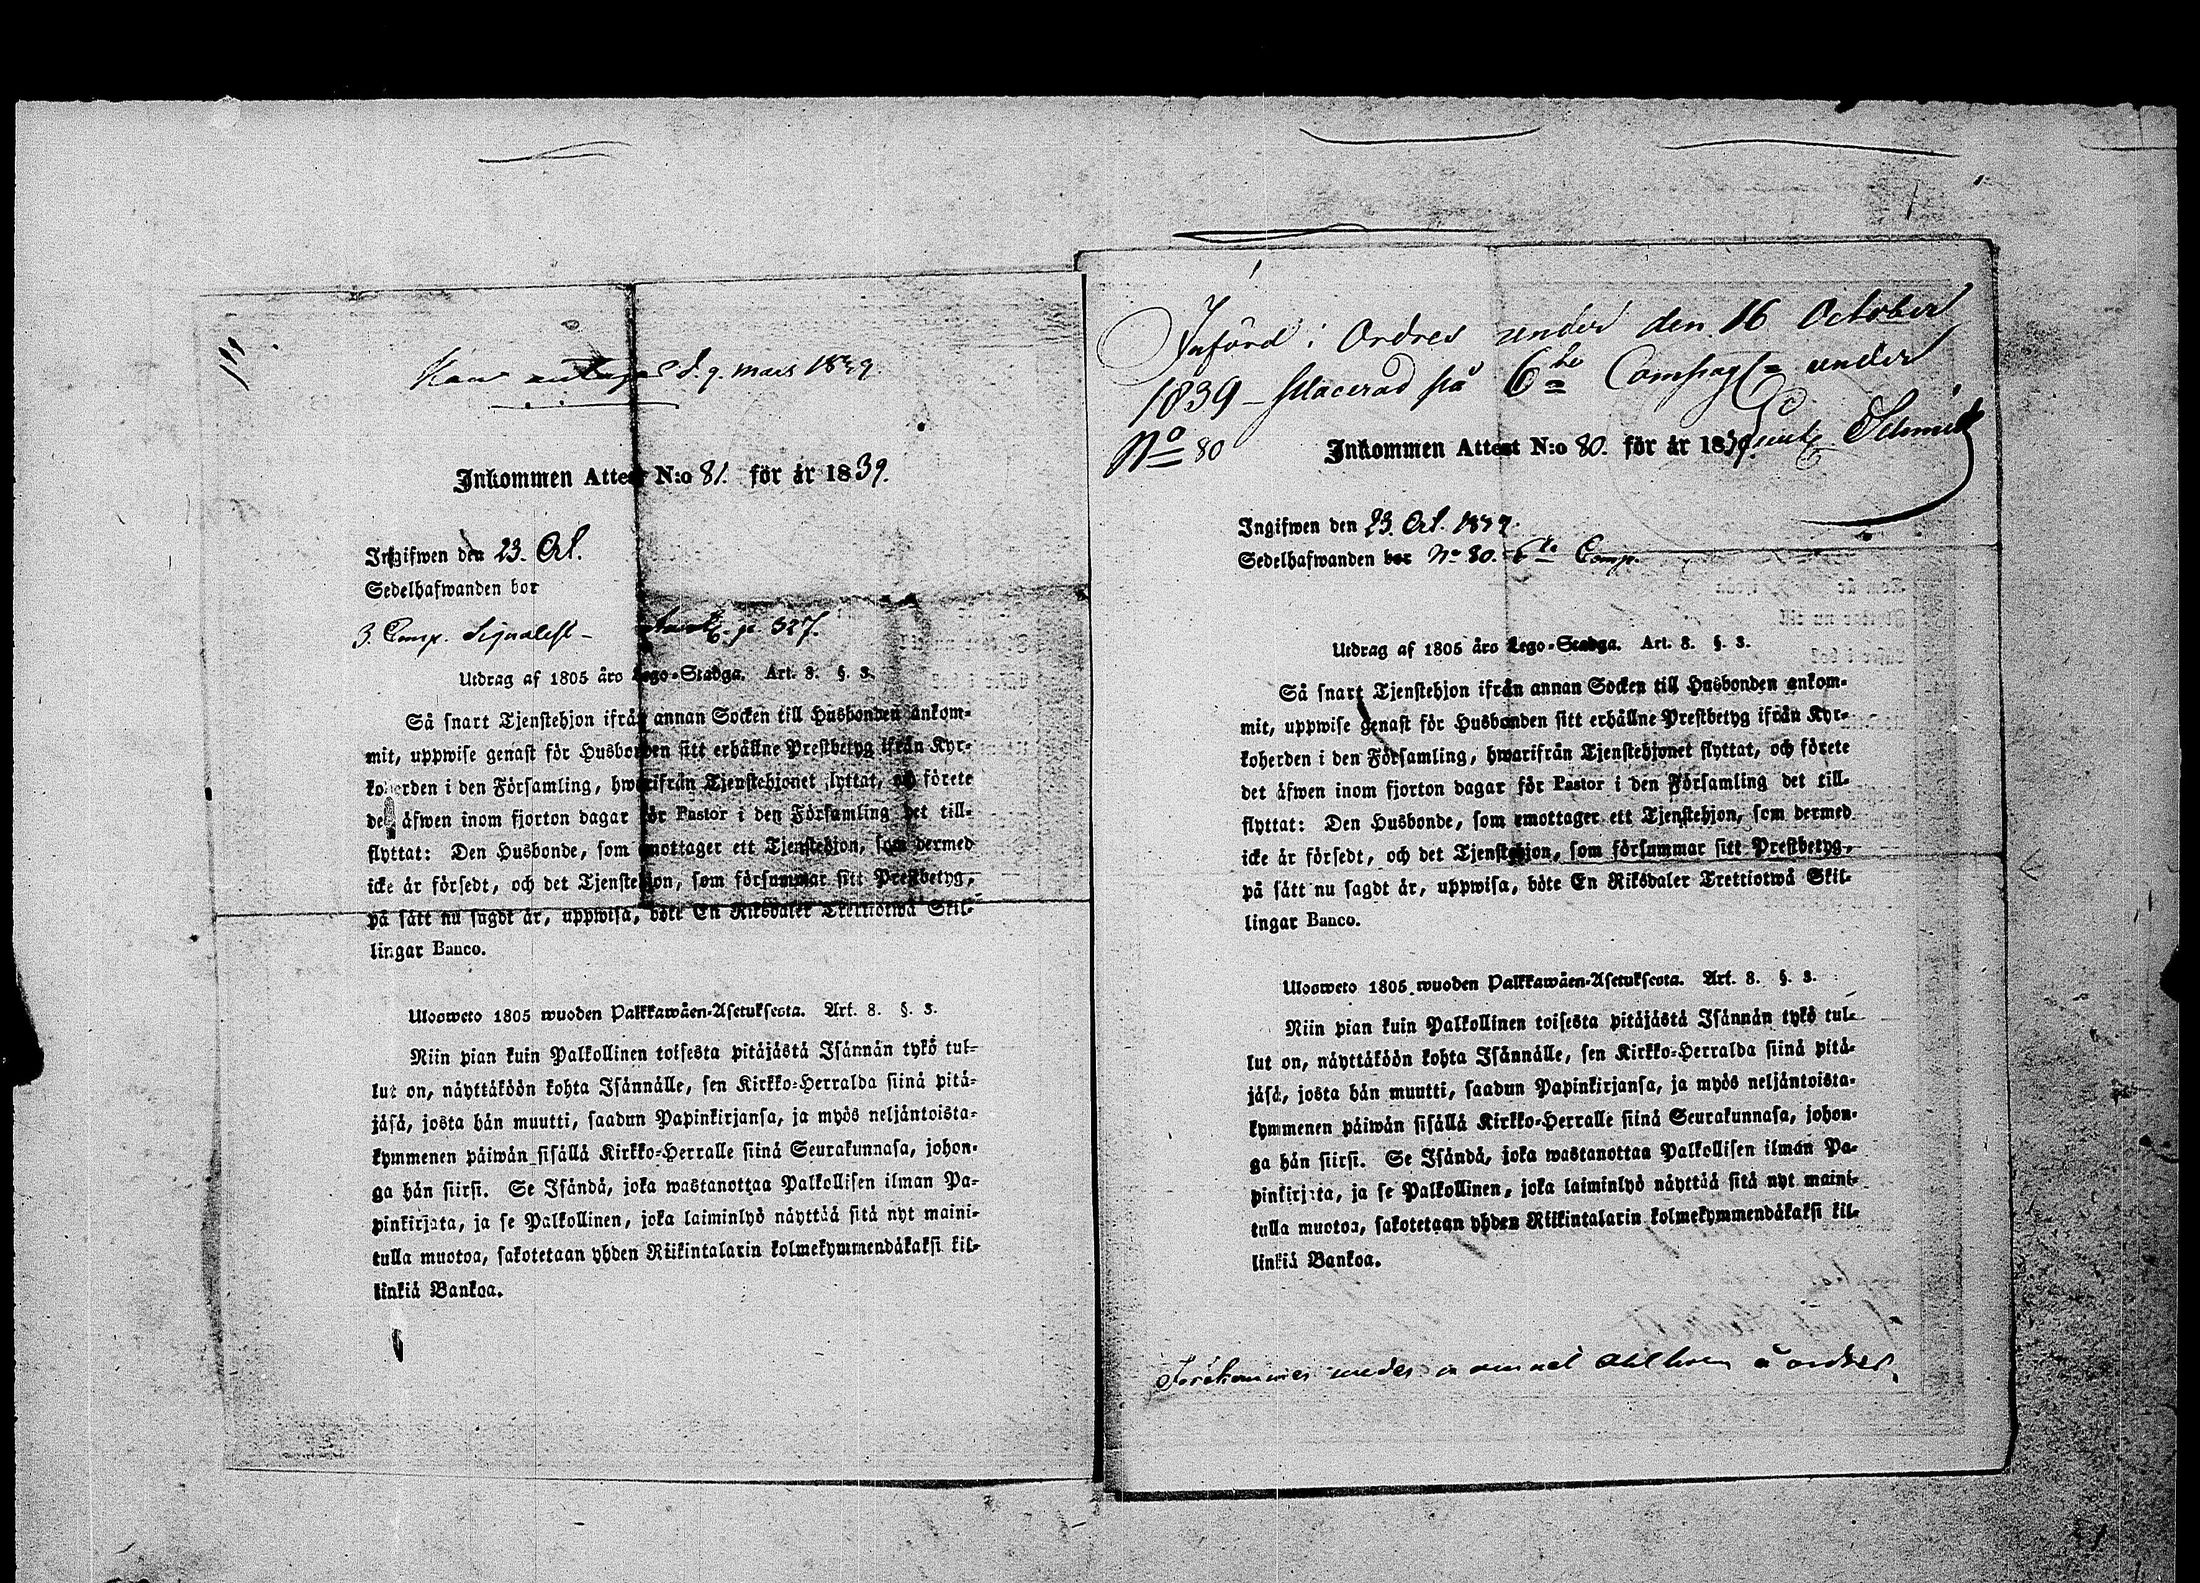 d. 9. mars 1839
Inkommen Attest N:o 81. för år 1839.
Ingifwen den 23. Oct.
Sedelhafwanden bor
3. Comp. Signalist – p. 327.
Utdrag af 1805 åro Lego-Stadga. Art. 8. §. 3.
Så snart Tjenstehjon ifrån annan Socken till Husbonden ankom-
mit, uppwise genast för Husbonden sitt erhållne Prestbetyg ifrån Kyr-
koherden i den Församling, hwarifrån Tjenstehjonet flyttat, och förete
det äfwen inom fjorton dagar för Pastor i den Församling det till-
flyttat: Den Husbonde, som emottager ett Tjenstehjon, som dermed
icke är försedt, och det Tjenstehjon, som försummar sitt Prestbetyg,
på sätt nu sagdt är, uppwisa, böte En Riksdaler Trettiotwå Skil-
lingar Banco.
Ulosweto 1805 wuoden Palkkawäen-Asetuksesta. Art. 8. §. 3.
Niin pian kuin Palkollinen toisesta pitäjästä Isännän tykö tul-
lut on, näyttäköön kohta Isännälle, sen Kirkko-Herralda siinä pitä-
jäsä, josta hän muutti, saadun Papinkirjansa, ja myös neljäntoista-
kymmenen päiwän sisällä Kirkko-Herralle siinä Seurakunnasa, johon-
ga hän siirsi. Se Isändä, joka wastanottaa Palkollisen ilman Pa-
pinkirjata, ja se Palkollinen, joka laiminlyö näyttää sitä nyt maini-
tulla muotoa, sakotetaan yhden Riikintalarin kolmekymmendäkaksi kil-
linkiä Bankoa.
Införd i Ordres under den 16 October
1839 – placerad på 6te Compag under
No 80 Schmidt
Inkommen Attest N:o 80. för år 1839.
Ingifwen den 23. Oct. 1839.
Sedelhafwanden bor No 80. 6te Comp.
Utdrag af 1805 åro Lego-Stadga. Art. 8. §. 3.
Så snart Tjenstehjon ifrån annan Socken till Husbonden ankom-
mit, uppwise genast för Husbonden sitt erhållne Prestbetyg ifrån Kyr-
koherden i den Församling, hwarifrån Tjenstehjonet flyttat, och förete
det äfwen inom fjorton dagar för Pastor i den Församling det till-
flyttat: Den Husbonde, som emottager ett Tjenstehjon, som dermed
icke är försedt, och det Tjenstehjon, som försummar sitt Prestbetyg,
på sätt nu sagdt är, uppwisa, böte En Riksdaler Trettiotwå Skil-
lingar Banco.
Ulosweto 1805 wuoden Palkkawäen-Asetuksesta. Art. 8. §. 3.
Niin pian kuin Palkollinen toisesta pitäjästä Isännän tykö tul-
lut on, näyttäköön kohta Isännälle, sen Kirkko-Herralda siinä pitä-
jäsä, josta hän muutti, saadun Papinkirjansa, ja myös neljäntoista-
kymmenen päiwän sisällä Kirkko-Herralle siinä Seurakunnasa, johon-
ga hän siirsi. Se Isändä, joka wastanottaa Palkollisen ilman Pa-
pinkirjata, ja se Palkollinen, joka laiminlyö näyttää sitä nyt maini-
tulla muotoa, sakotetaan yhden Riikintalarin kolmekymmendäkaksi kil-
linkiä Bankoa.
Förekommer under